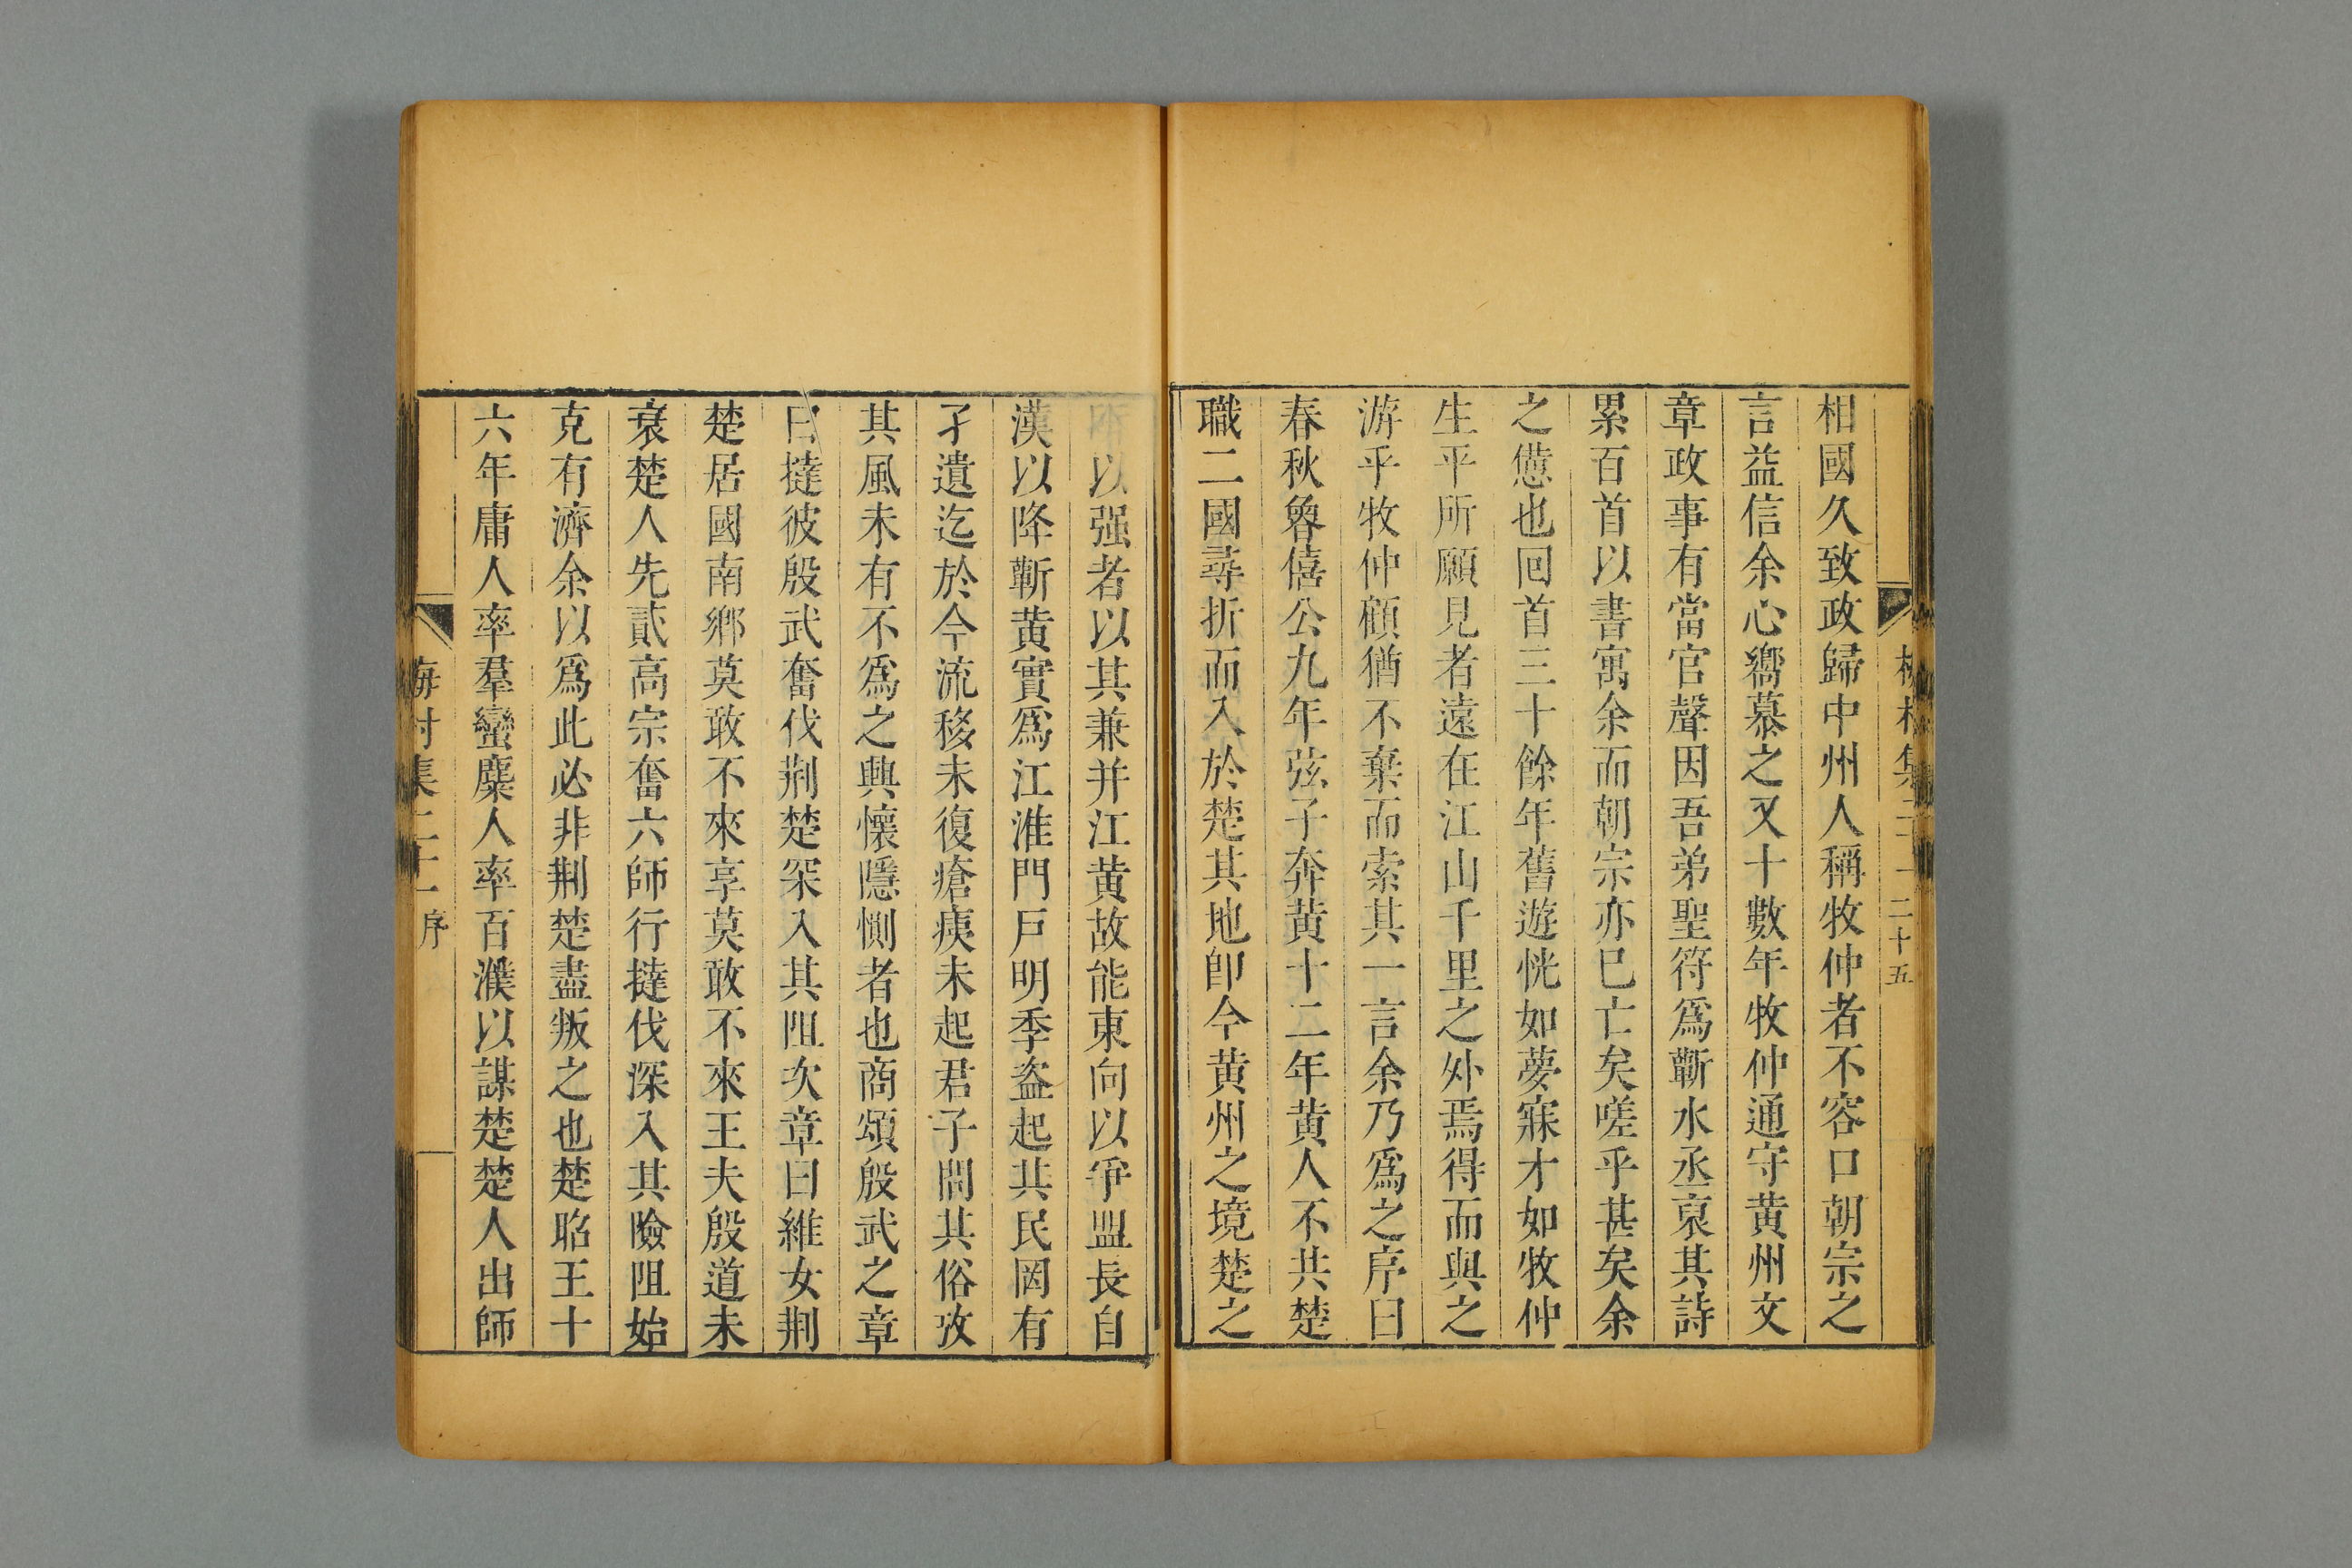 相國久致政歸中州人稱牧仲者不容口朝宗之
言益信余心嚮慕之又十數年牧仲通守黄州文
章政事有當官聲因吾弟聖符爲蘄水丞裒其詩
累百首以書寓余而朝宗亦已亡矣嗟乎甚矣余
之憊也回首三十餘年舊遊恍如夢寐才如牧仲
生平所願見者遠在江山千里之外焉得而與之
游乎牧仲顧猶不棄而索其一言余乃爲之序曰
春秋魯僖公九年弦子奔黄十二年黄人不共楚
職二國尋折而入於楚其地卽今黄州之境楚之
所以强者以其兼并江黄故能東向以爭盟長自
漢以降蘄黄實爲江淮門戸明季盗起其民罔有
孑遺迄於今流移未復瘡痍未起君子問其俗攷
其風未有不爲之興懷隱惻者也商頌殷武之章
曰撻彼殷武奮伐荆楚罙入其阻次章曰維女荆
楚居國南鄉莫敢不來享莫敢不來王夫殷道未
衰楚人先貳高宗奮六師行撻伐深入其險阻始
克有濟余以爲此必非荆楚盡叛之也楚昭王十
六年庸人率羣蠻麇人率百濮以謀楚楚人出師
梅村集二十一 二十五
梅村集二十一 序